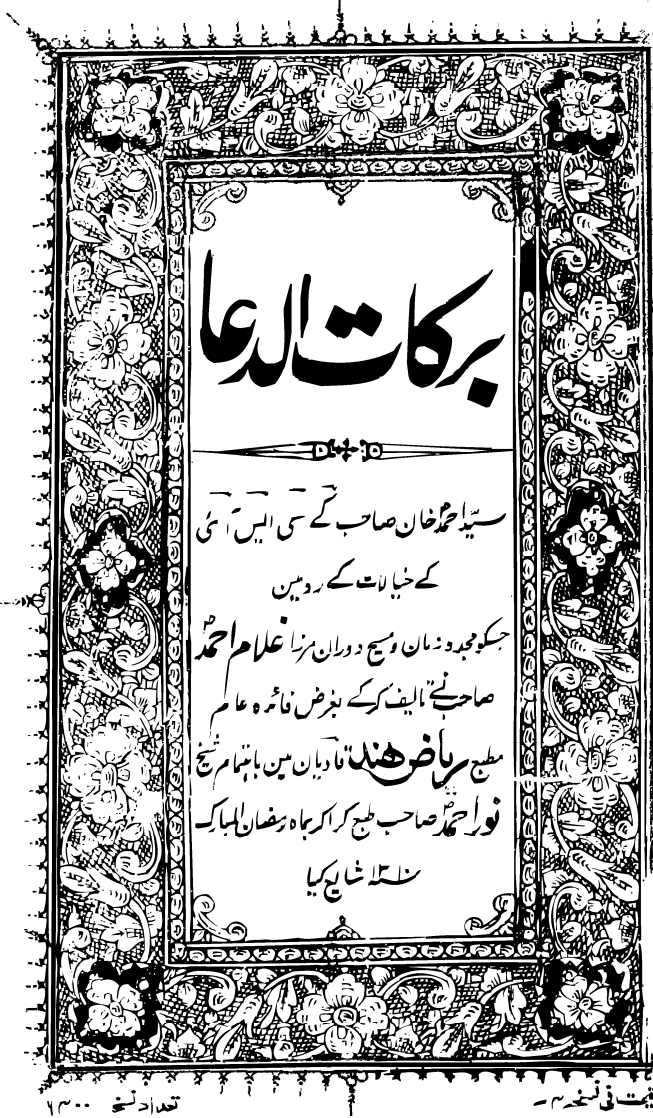 برکات الدعا
سیّد احمدؐ خان صاحب کے سی ایس آئی
کے خیالات کے رد مین
جسکو مجدد زمان و مسیح دوران مرزا غلام احمدؐ
صاحب نے تالیف کرکے بغرض فائدہ عام
مطبع ریاض ھند قادیان مین باہتمام شیخ
نور احمدؐ صاحب طبع کراکر بماہ رمضان المبارک
۱۳۱۰ شایع کیا
قیمت فی نسخہ
تعداد نسخہ